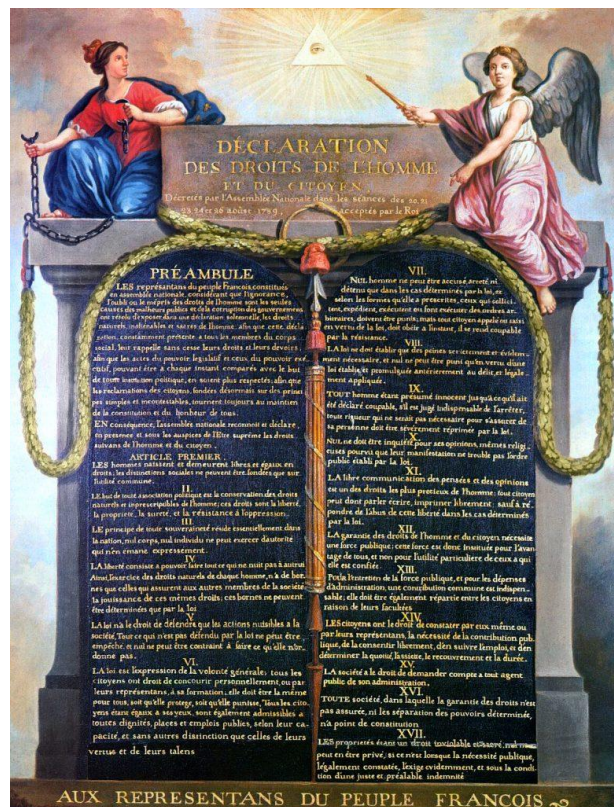 DÉCLARATION
DES DROITS DE L'HOMME
ET DU CITOYEN,
Décrétés par l'Assemblée Nationale dans les séances des 20, 21
23, 24 et 26 août 1789, acceptés par le Roi
PRÉAMBULE
LES représantans du peuple François, constitués
en assemblée nationale, considérant que l'ignorance,
l'oubli ou le mépris des droits de l'homme sont les seules
causes des malheurs publics et de la corruption des gouvernemens
ont résolu d'exposer dans une déclaration solemnelle, les droits
naturels, inaliénables et sacrés de l'homme; afin que cette décla-
ration, constamment présente a tous les membres du corps
social, leur rappelle sans cesse leurs droits et leurs devoirs;
afin que les actes du pouvoir législatif et ceux du pouvoir exé-
cutif, pouvant être à chaque instant comparés avec le but
de toute institution politique, en soient plus respectés; afin que
les réclamations des citoyens, fondées désormais sur des princi-
pes simples et incontestables, tournent toujours au maintien
de la constitution et du bonheur de tous.
EN conséquence, l'assemblée nationale reconnoit et déclare,
en présence et sous les auspices de l'Être suprême les droits
suivans de l'homme et du citoyen.
ARTICLE PREMIER.
LES hommes naissent et demeurent libres et égaux en
droits; les distinctions sociales ne peuvent être fondées que sur
l'utilité commune.
II.
LE but de toute association politique est la conservation des droits
naturels et imprescriptibles de l'homme; ces droits sont la liberté,
la propriété, la sureté, et la résistance à l'oppression.
III.
LE principe de toute souveraineté réside essentiellement dans
la nation, nul corps, nul individu ne peut exercer d'autorité
qui n'en émane expressement.
IV.
LA liberté consiste a pouvoir faire tout ce qui ne nuit pas à autrui
Ainsi, l'exercice des droits naturels de chaque homme, n'a de bor-
nes que celles qui assurent aux autres membres de la société
la jouissance de ces mêmes droits; ces bornes ne peuvent
être déterminées que par la loi
V.
LA loi n'a le droit de défendre que les actions nuisibles a la
société. Tout ce qui n'est pas défendu par la loi ne peut être
empêché, et nul ne peut être contraint à faire ce qu'elle n'or-
donne pas.
VI.
LA loi est l'expression de la volonté générale; tous les
citoyens ont droit de concourir personnellement, ou par
leurs représentans, à sa formation; elle doit être la même
pour tous, soit qu'elle protege, soit qu'elle punisse. Tous les cito-
yens étant égaux à ses yeux, sont également admissibles à
toutes dignités, places et emplois publics, selon leur ca-
pacité, et sans autres distinction que celles de leurs
vertus et de leurs talens
VII.
NUL homme ne peut être accusé, arreté ni
détenu que dans les cas déterminés par la loi, et
selon les formes qu'elle a prescrites, ceux qui sollici-
tent, expédient, exécutent ou font exécuter des ordres ar-
bitraires, doivent être punis; mais tout citoyen appelé ou saisi
en vertu de la loi, doit obéir a l'instant, il se rend coupable
par la résistance.
VIII.
LA loi ne doit établir que des peines strictement et évidem-
ment nécessaire, et nul ne peut être puni qu'en vertu d'une
loi établie, et promulguée antérieurement au délit, et légale-
ment appliquée.
IX.
TOUT homme étant présumé innocent jusqu'a ce qu'il ait
été déclaré coupable, s'il est jugé indispensable de l'arrêter,
toute rigueur qui ne serait pas nécessaire pour s'assurer de
sa personne doit être sévérement réprimée par la loi.
X.
NUL ne doit être inquiété pour ses opinions, mêmes religi-
euses pourvu que leur manifestation ne trouble pas l'ordre
public établi par la loi.
XI.
LA libre communication des pensées et des opinions
est un des droits les plus precieux de l'homme; tout citoyen
peut donc parler écrire, imprimer librement; sauf à ré-
pondre de l'abus de cette liberté dans les cas déterminés
par la loi.
XII.
LA garantie des droits de l'homme et du citoyen nécessite
une force publique; cette force est donc instituée pour l'avan-
tage de tous, et non pour l'utilité particuliere de ceux a qui
elle est confiée.
XIII.
POUR l'entretien de la force publique, et pour les dépenses
d'administration, une contribution commune est indispen-
sable; elle doit être également répartie entre les citoyens en
raison de leurs facultées
XIV.
LES citoyens ont le droit de constater par eux même ou
par leurs représentans, la nécessité de la contribution pub-
lique, de la consentir librement, d'en suivre l'emploi, et d'en
déterminer la quotité, l'assiette, le recouvrement et la durée.
XV.
LA société a le droit de demander compte a tout agent
public de son administration.
XVI.
TOUTE société, dans laquelle la garantie des droits n'est
pas assurée, ni les séparation des pouvoirs déterminée,
n'a point de constitution
XVII.
LES propriétés étant un droit inviolable et sacré, nul ne
peut en être privé, si ce n'est lorsque la nécessité publique,
légalement constatée, l'exige evidemment, et sous la condi-
tion d'une juste et préalable indemnité
AUX REPRESENTANS DU PEUPLE FRANCOIS